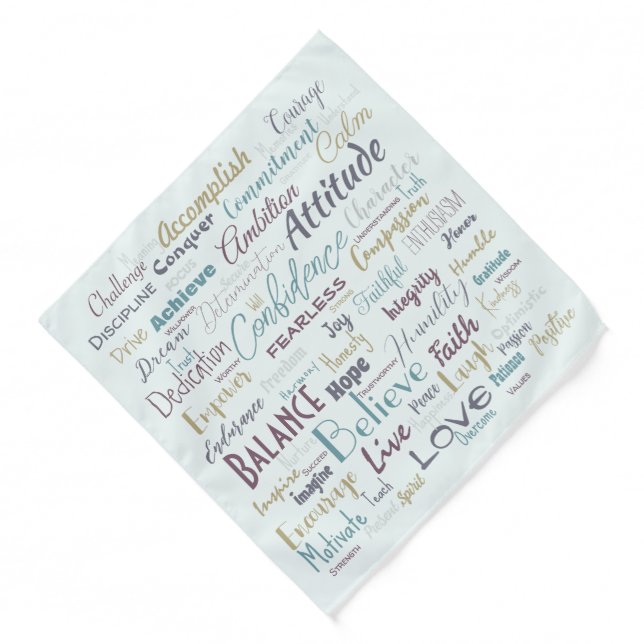 Courage
Memories
Understand
Commitment
Gratitude
Calm
Accomplish
Meaning
Conquer
Ambition
Attitude
Character
Truth
Challenge
Focus
Secure
Determination
Understanding
Compassion
Enthusiasm
Discipline
Achieve
Confidence
Honor
Drive
Willpower
Will
Strong
Faithful
Humble
Dream
Fearless
Integrity
Gratitude
Trusty
Joy
Humility
Kindness
Wisdom
Dedication
Worthy
Freedom
Honesty
Optimistic
Empower
Harmony
Hope
Trustworthy
Faith
Passion
Positive
Endurance
Balance
Believe
Peace
Laugh
Patience
Nurture
Happiness
Values
Succeed
Live
Love
Overcome
Inspire
imagine
Encourage
Teach
Spirit
Motivate
Present
Strength